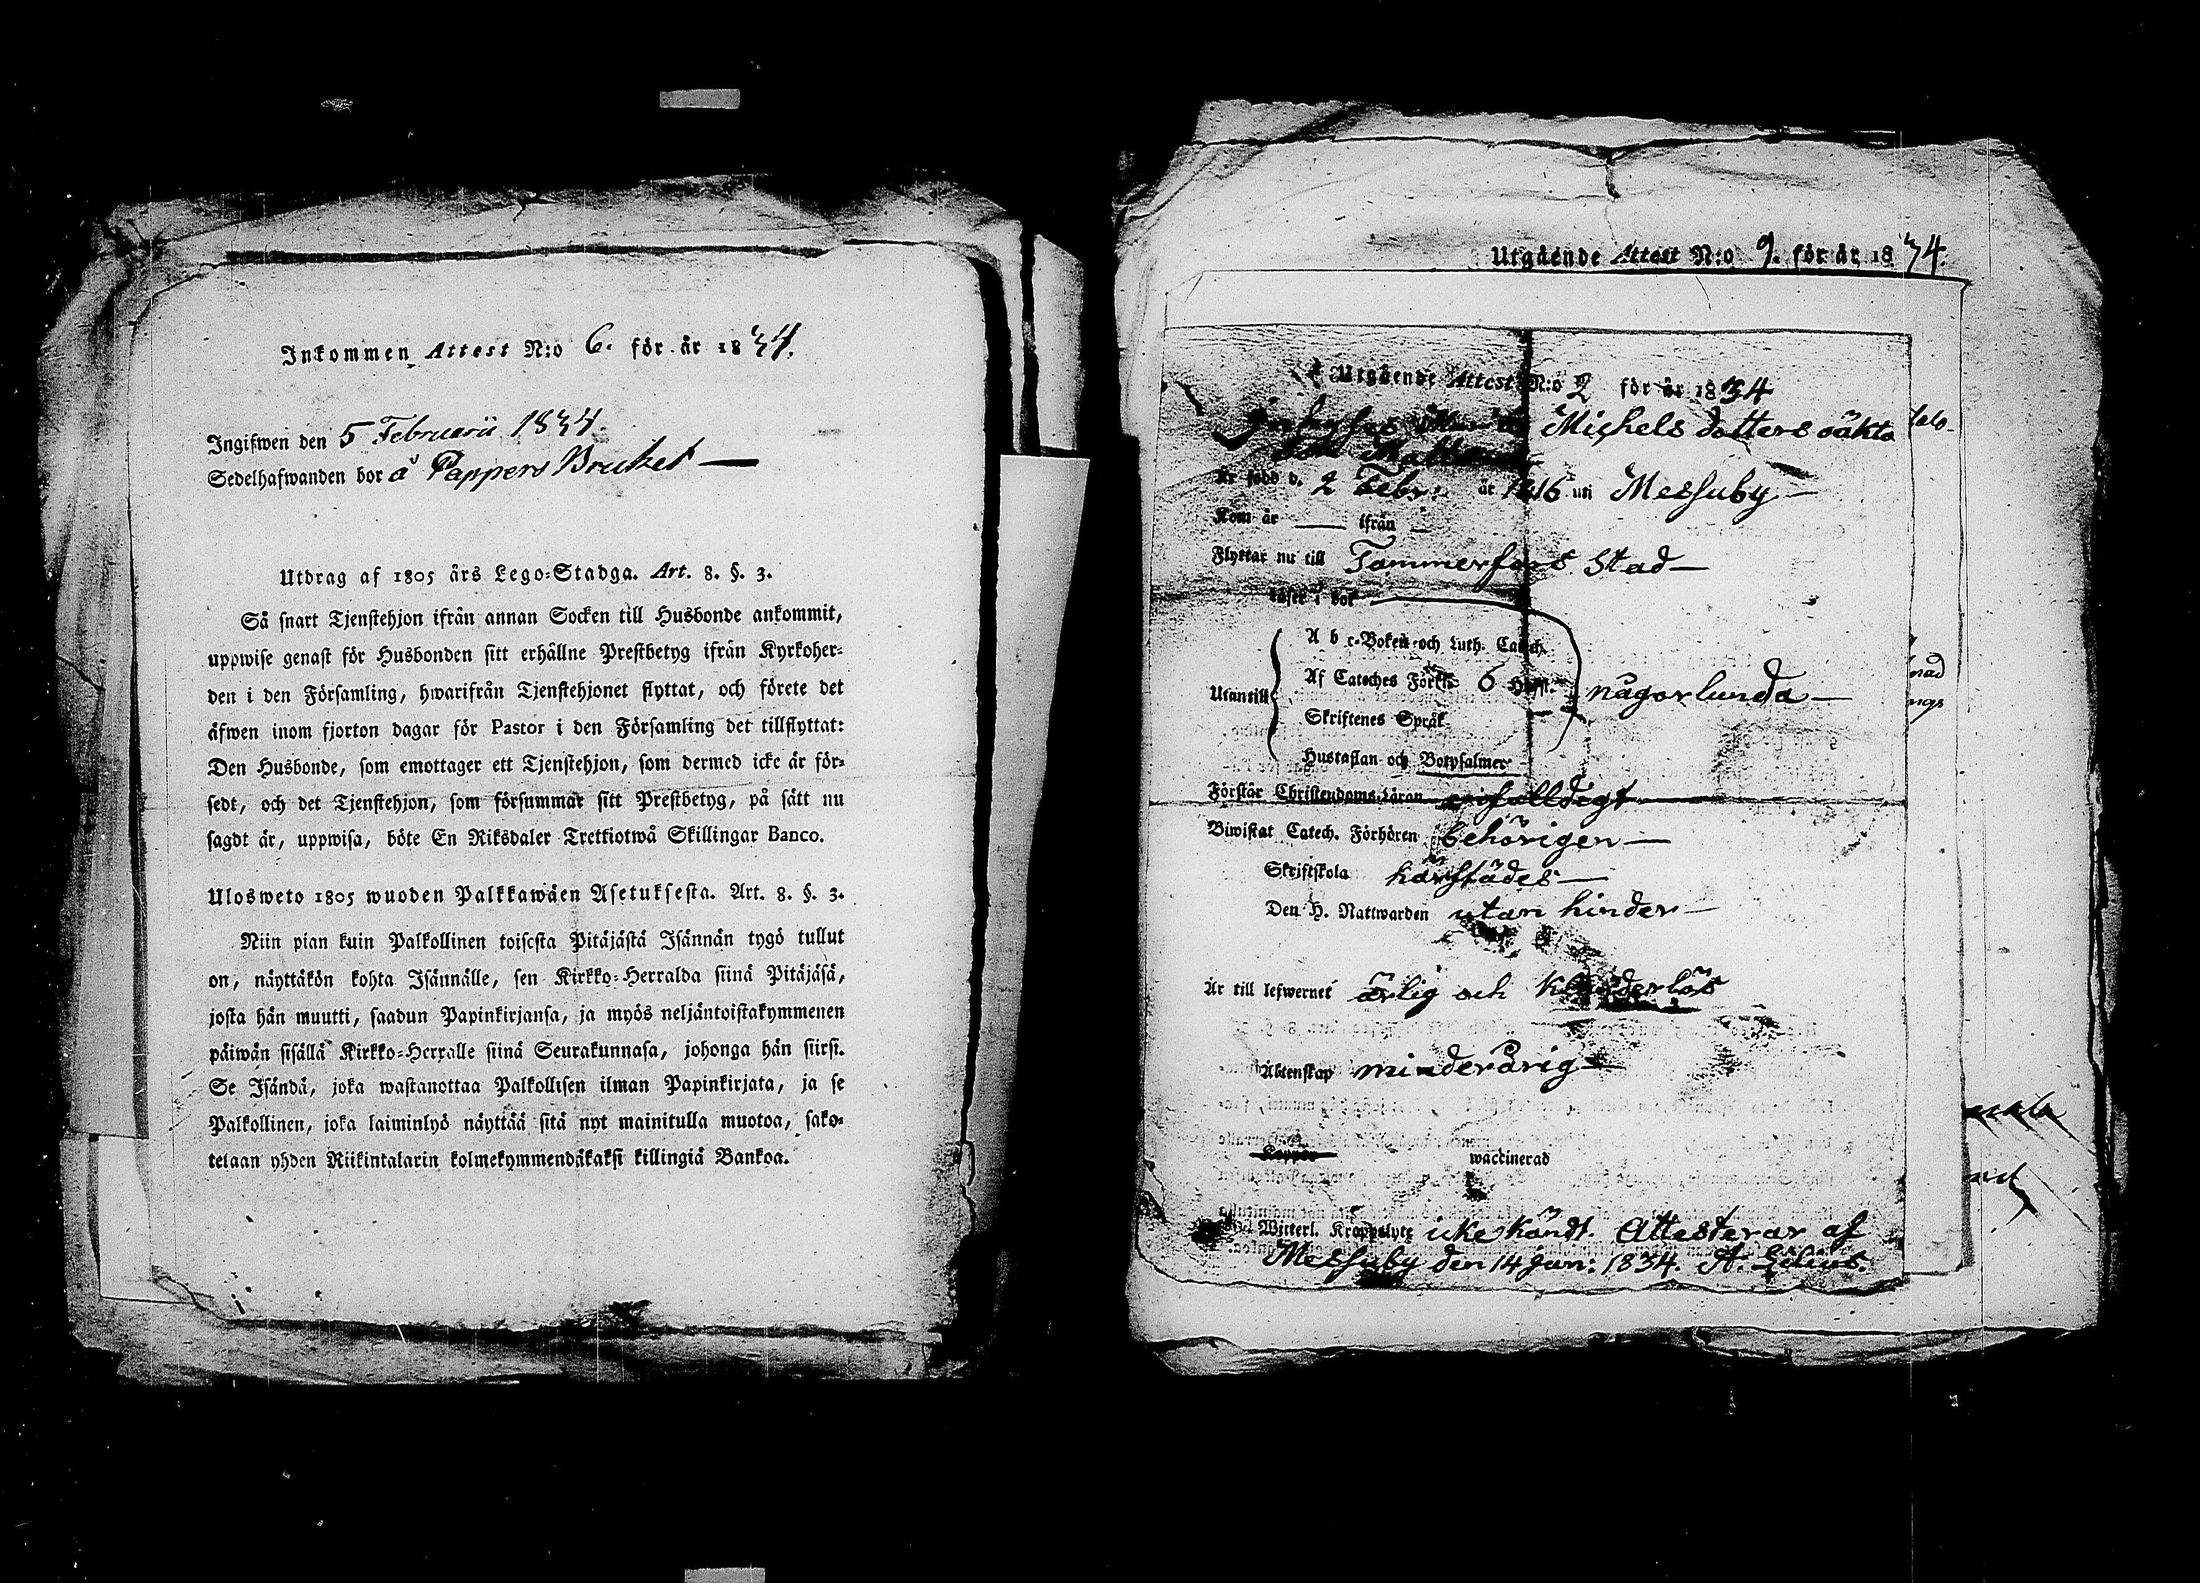 Inkommen Attest N:o 6. för år 1834.
Ingifwen den 5 Februarii 1834
Sedelhafwanden bor å Pappers Bruket —
Utdrag af 1805 års Lego-Stadga. Art. 8. §. 3.
Så snart Tjenstehjon ifrån annan Socken till Husbonde ankommit,
uppwise genast för Husbonden sitt erhållne Prestbetyg ifrån Kyrkoher-
den i den Församling, hwarifrån Tjenstehjonet flyttat, och förete det
äfwen inom fjorton dagar för Pastor i den Församling det tillflyttat:
Den Husbonde, som emottager ett Tjenstehjon, som dermed icke är för-
sedt, och det Tjenstehjon, som försummar sitt Prestbetyg, på sätt nu
sagdt är, uppwisa, böte En Riksdaler Trettiotwå Skillingar Banco.
Ulosweto 1805 wuoden Palkkawäen Asetuksesta. Art. 8. §. 3.
Niin pian kuin Palkollinen toisesta Pitäjästä Isännän tygö tullut
on, näyttäkön kohta Isännälle, sen Kirkko-Herralda siinä Pitäjäsä,
josta hän muutti, saadun Papinkirjansa, ja myös neljäntoistakymmenen
päiwän sisällä Kirkko-Herralle siinä Seurakunnasa, johonga hän siirsi.
Se Isändä, joka wastanottaa Palkollisen ilman Papinkirjata, ja se
Palkollinen, joka laiminlyö näyttää sitä nyt mainitulla muotoa, sako-
tetaan yhden Riikintalarin kolmekymmendäkaksi killingiä Bankoa.
Utgående Attest N:o 9. för år 1834.
Utgående Attest N:o 2 för år 1834
Michels dotters oäkta
Son
Är född d. 2 Febr. år 1816 uti Messuby —
Kom år — ifrån —
Flyttar nu till Tammerfors Stad —
läser i bok
A b c-Boken och Luth. Catech.
Af Cateches Förkl. 6 Hufst. någorlunda —
Utantill
Skriftenes Språk
Hustaflan och Botpsalmer
Förstår Christendoms Läran enfalldigt
Biwistat Catech. Förhören behörigen —
Skriftskola härstädes —
Den H. Nattwarden utan hinder —
Är till lefwernet ärlig och klanderlös
Äktenskap minderårig —
Koppor waccinerad
Witterl. Kroppslyte icke kändt. Attesterar af
Messuby den 14 Jan: 1834. A. Lilius.